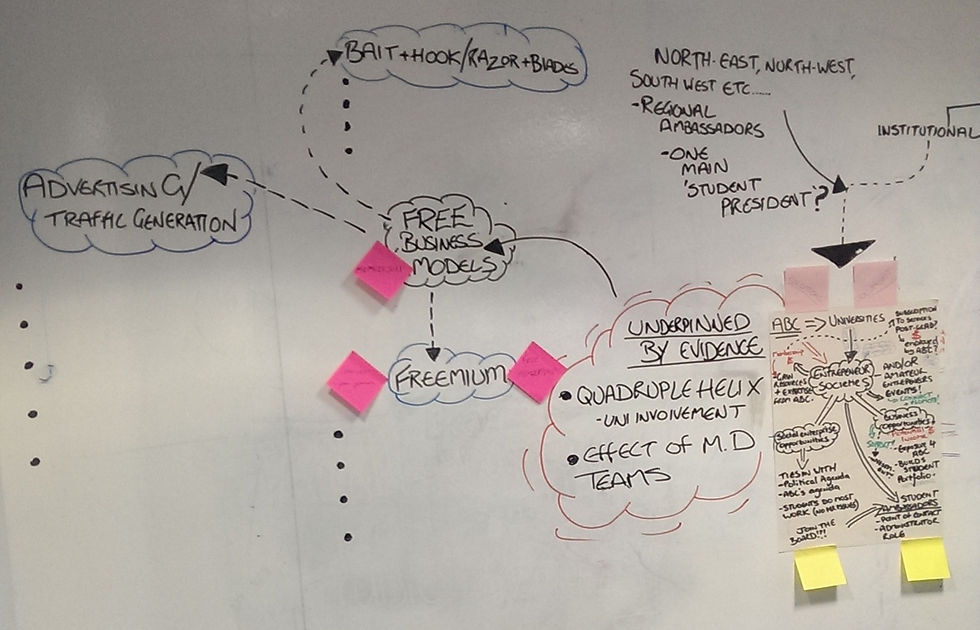 BAIT+HOOK/RAZOR+BLADES
ADVERTISING/
TRAFFIC GENERATION
FREE
BUSINESS
MODELS
FREEMIUM
UNDERPINNED
BY EVIDENCE
• QUADRUPLE HELIX
- UNI INVOLVEMENT
• EFFECT OF M.D
TEAMS
NORTH-EAST, NORTH-WEST,
SOUTH WEST ETC.....
- REGIONAL
AMBASSADORS
- ONE
MAIN
'STUDENT
PRESIDENT'?
INSTITUTIONAL
ABC => UNIVERSITIES
SUBSCRIPTION
TO SERVICES
POST-GRAD?
employed
by ABC?
Membership
GAIN
RESOURCES
+ EXPERTISE
FROM ABC.
ENTREPRENEUR
SOCIETIES
AND/OR
AMATEUR
ENTREPENERS
EVENTS!
Social enterprise
opportunities
BUSINESS
opportunities
Potential
Income
- Exposure 4
ABC
- BUILDS
STUDENT
Portfolio
TIES IN WITH
- Political Agenda
- ABC's agenda
- STUDENTS DO MOST
WORK (NO HR ISSUES)
JOIN THE
BOARD!!!
STUDENT
AMBASSADORS
- POINT OF CONTACT
- ADMINISTRATOR
ROLE